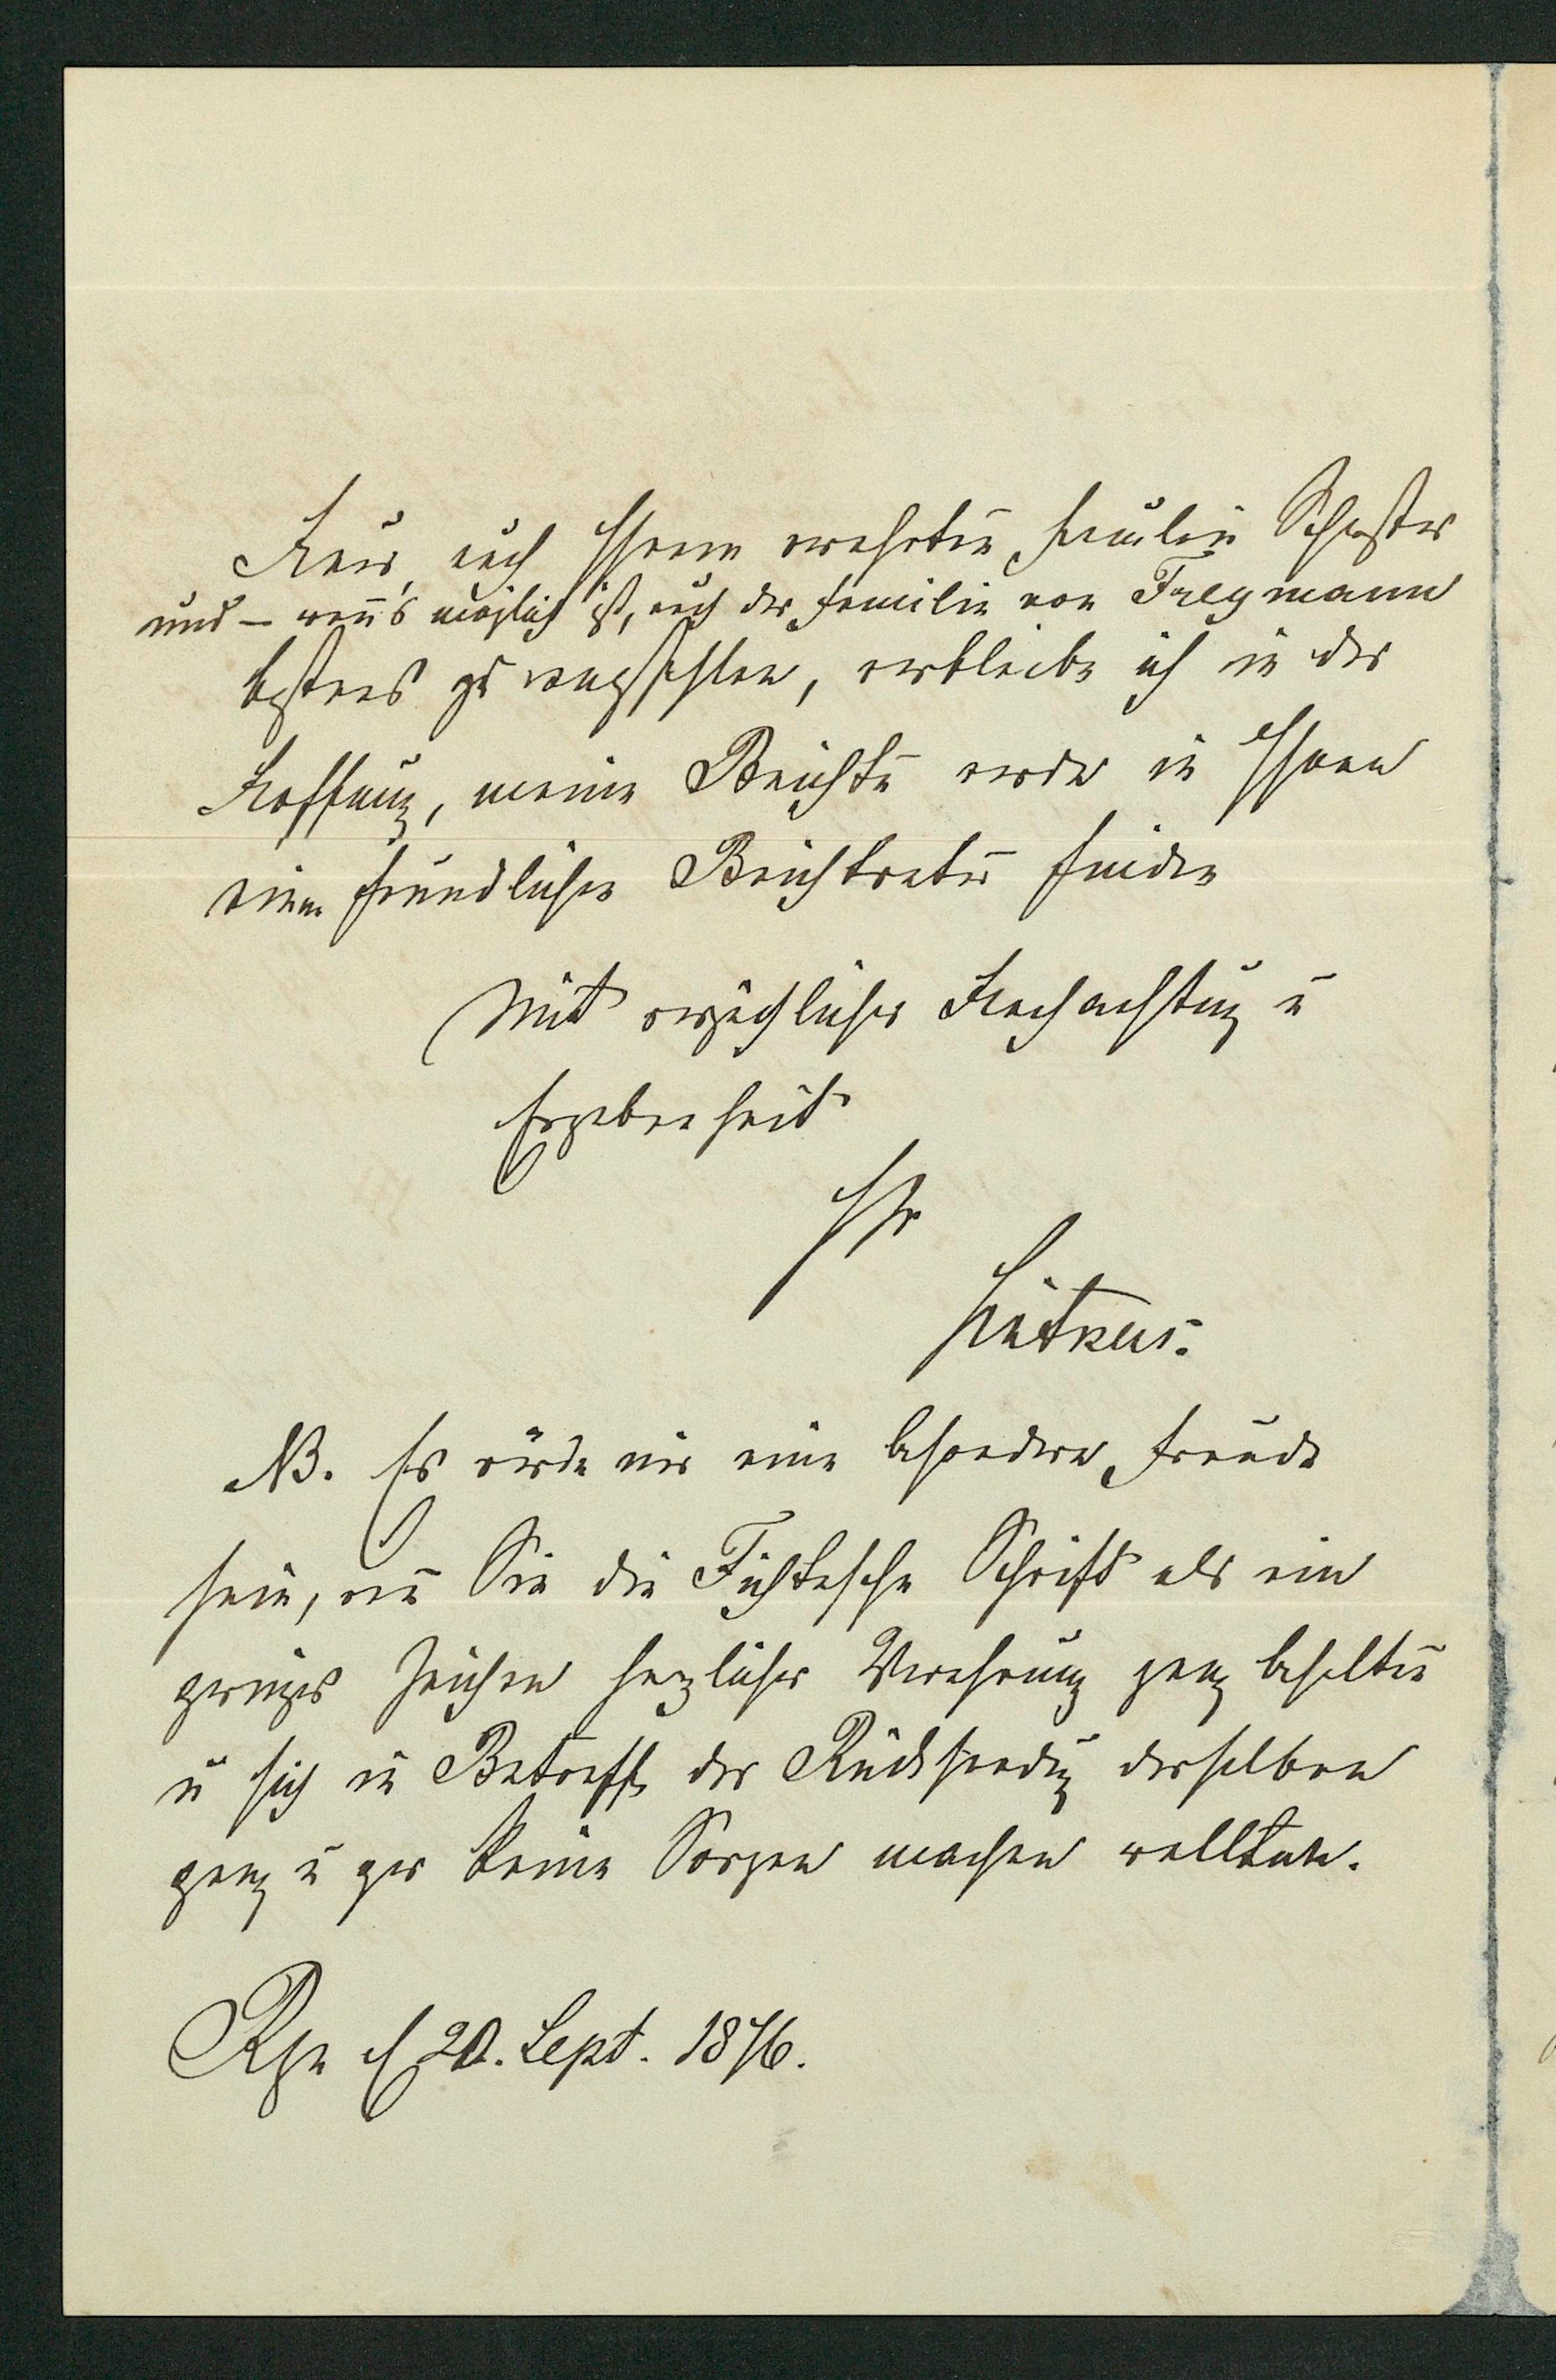 auch Ihrem verehrten Fräulein Schwester
und – wenn's möglich ist, auch der Familie von Tregmann
bestens zu empfehlen, verbleibe ich in der
Hoffnung, meine Beichte werde in Ihnen
einen freundlichen Beichtvater finden
Mit vorzüglicher Hochachtung u
Ergebenheit
Ihr
NB. Es würde mir eine besondere Freude
sein, wen̄ Sie die Fichtesche Schrift als ein
geringes Zeichen herzlicher Verehrung ganz behalten
u sich in Betreff der Rücksendung derselben
ganz u gar keine Sorgen machen wollten.
20. Sept. 1876.